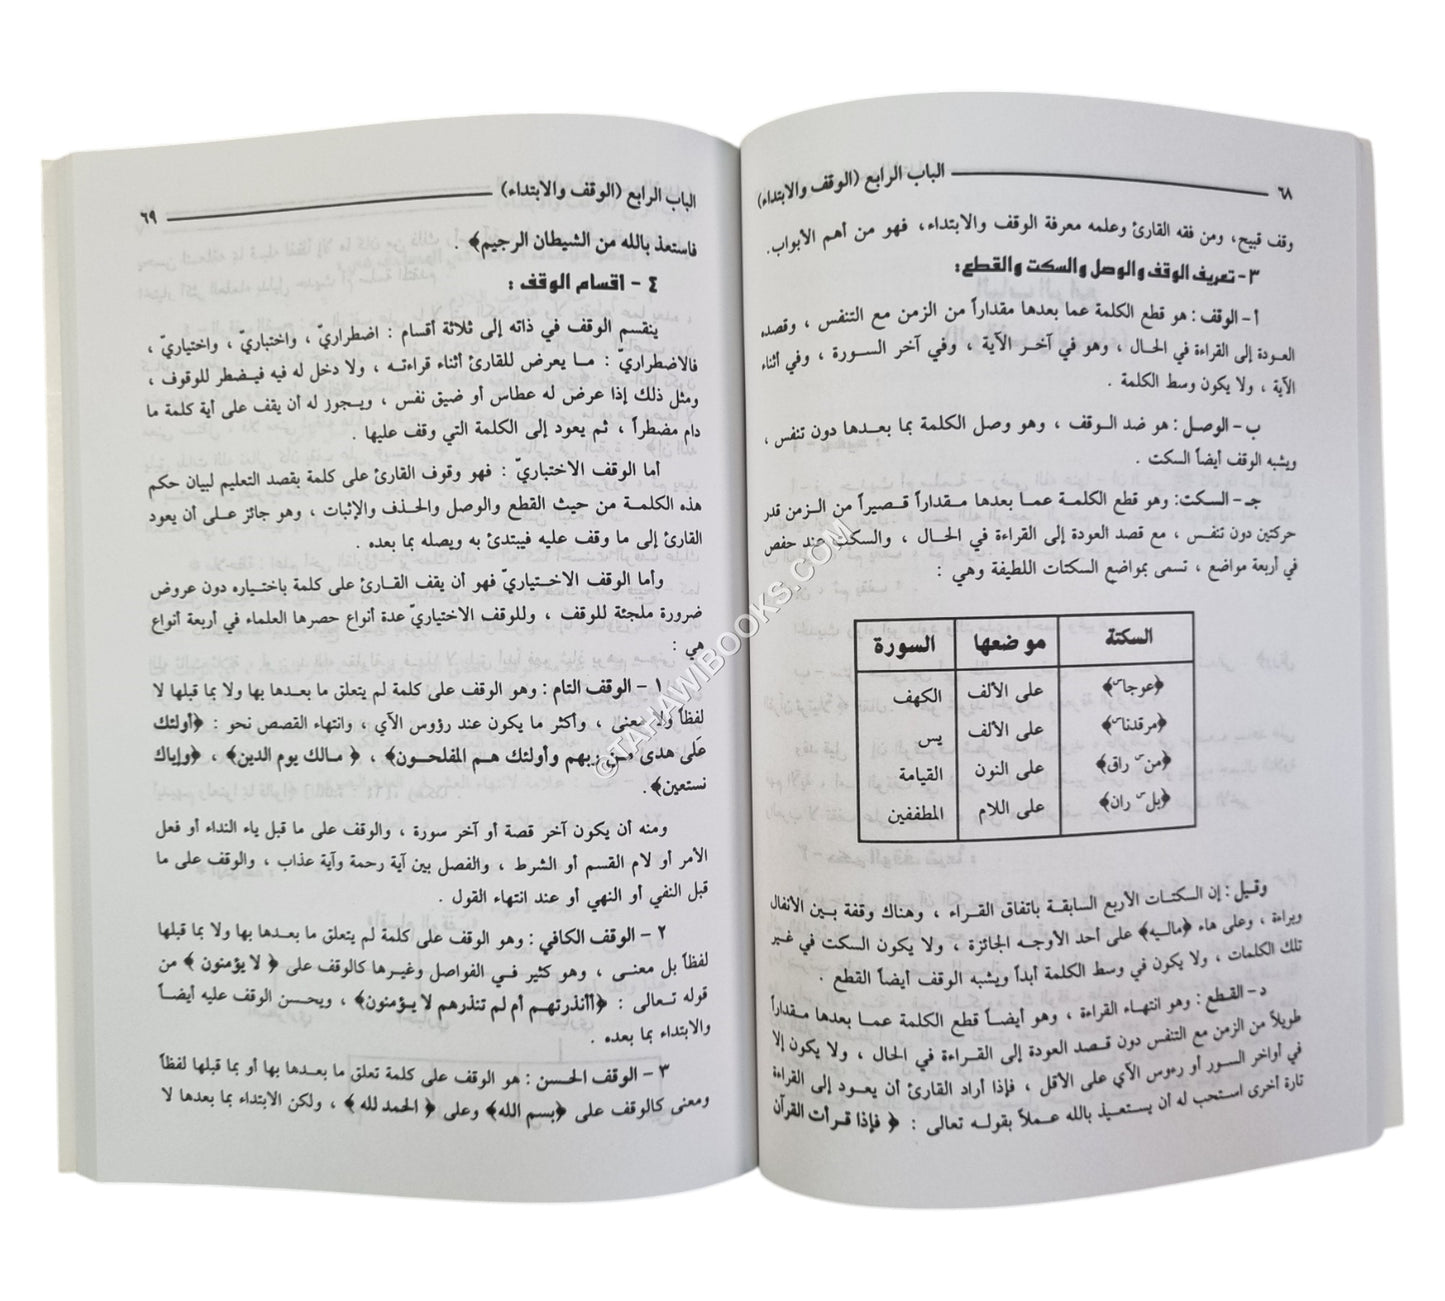 ٦٨ الباب الرابع (الوقف والابتداء)
وقف قبيح، ومن فقه القارئ وعلمه معرفة الوقف والابتداء، فهو من أهم الأبواب.
٣- تعريف الوقف والوصل والسكت والقطع:
أ- الوقف : هو قطع الكلمة عما بعدها مقداراً من الزمن مع التنفس ، وقصده
العودة إلى القراءة في الحال ، وهو في آخر الآية ، وفي آخر السورة ، وفي أثناء
الآية ، ولا يكون وسط الكلمة .
ب- الوصل : هو ضد الوقف ، وهو وصل الكلمة بما بعدها دون تنفس ،
ويشبه الوقف أيضاً السكت .
جـ- السكت: وهو قطع الكلمة عما بعدها مقداراً قصيراً من الزمن قدر
حركتين دون تنفس ، مع قصد العودة إلى القراءة في الحال ، والسكت عند حفص
في أربعة مواضع ، تسمى بمواضع السكتات اللطيفة وهي :
السكتة موضعها السورة
﴿عوجاس﴾ على الألف الكهف
﴿مرقدناس﴾ على الألف يس
﴿منس راق﴾ على النون القيامة
﴿بلس ران﴾ على اللام المطففين
وقيل : إن السكتات الأربع السابقة باتفاق القراء ، وهناك وقفة بين الأنفال
وبراءة ، وعلى هاء ﴿ماليه﴾ على أحد الأوجه الجائزة ، ولا يكون السكت في غير
تلك الكلمات ، ولا يكون في وسط الكلمة أبداً ويشبه الوقف أيضاً القطع .
د- القطع : وهو انتهاء القراءة ، وهو أيضاً قطع الكلمة عما بعدها مقداراً
طويلاً من الزمن مع التنفس دون قصد العودة إلى القراءة في الحال ، ولا يكون إلا
في أواخر السور أو رءوس الآي على الأقل ، فإذا أراد القارئ أن يعود إلى القراءة
تارة أخرى استحب له أن يستعيذ بالله عملاً بقوله تعالى : ﴿ فإذا قرأت القرآن
الباب الرابع (الوقف والابتداء) ٦٩
فاستعذ بالله من الشيطان الرجيم﴾ .
٤ - اقسام الوقف :
ينقسم الوقف في ذاته إلى ثلاثة أقسام : اضطراريّ ، واختباريّ ، واختياريّ ،
فالاضطراريّ : ما يعرض للقارئ أثناء قراءته ، ولا دخل له فيه فيضطر للوقوف ،
ومثل ذلك إذا عرض له عطاس أو ضيق نفس ، ويجوز له أن يقف على أية كلمة ما
دام مضطراً ، ثم يعود إلى الكلمة التي وقف عليها .
أما الوقف الاختباريّ : فهو وقوف القارئ على كلمة بقصد التعليم لبيان حكم
هذه الكلمة من حيث القطع والوصل والحذف والإثبات ، وهو جائز على أن يعود
القارئ إلى ما وقف عليه فيبتدئ به ويصله بما بعده .
وأما الوقف الاختياريّ فهو أن يقف القارئ على كلمة باختياره دون عروض
ضرورة ملجئة للوقف ، وللوقف الاختياريّ عدة أنواع حصرها العلماء في أربعة أنواع
هي :
١ - الوقف التام : وهو الوقف على كلمة لم يتعلق ما بعدها بها ولا بما قبلها لا
لفظاً ولا معنى ، وأكثر ما يكون عند رؤوس الآي ، وانتهاء القصص نحو : ﴿أولئك
على هدى من ربهم وأولئك هم المفلحون﴾ ، ﴿ مالك يوم الدين﴾ ، ﴿وإياك
نستعين﴾.
ومنه أن يكون آخر قصة أو آخر سورة ، والوقف على ما قبل ياء النداء أو فعل
الأمر أو لام القسم أو الشرط ، والفصل بين آية رحمة وآية عذاب ، والوقف على ما
قبل النفي أو النهي أو عند انتهاء القول .
٢ - الوقف الكافي : وهو الوقف على كلمة لم يتعلق ما بعدها بها ولا بما قبلها
لفظاً بل معنى ، وهو كثير في الفواصل وغيرها كالوقف على ﴿ لا يؤمنون ﴾ من
قوله تعالى : ﴿أأنذرتهم أم لم تنذرهم لا يؤمنون﴾ ، ويحسن الوقف عليه أيضاً
والابتداء بما بعده .
٣ - الوقف الحسن : هو الوقف على كلمة تعلق ما بعدها بها أو بما قبلها لفظاً
ومعنى كالوقف على ﴿بسم الله﴾ وعلى ﴿ الحمد لله ﴾ ، ولكن الابتداء بما بعدها لا
©TAHAWIBOOKS.COM